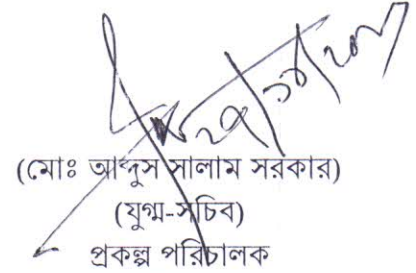 (মোঃ আব্দুস সালাম সরকার)
(যুগ্ম-সচিব)
প্রকল্প পরিচালক